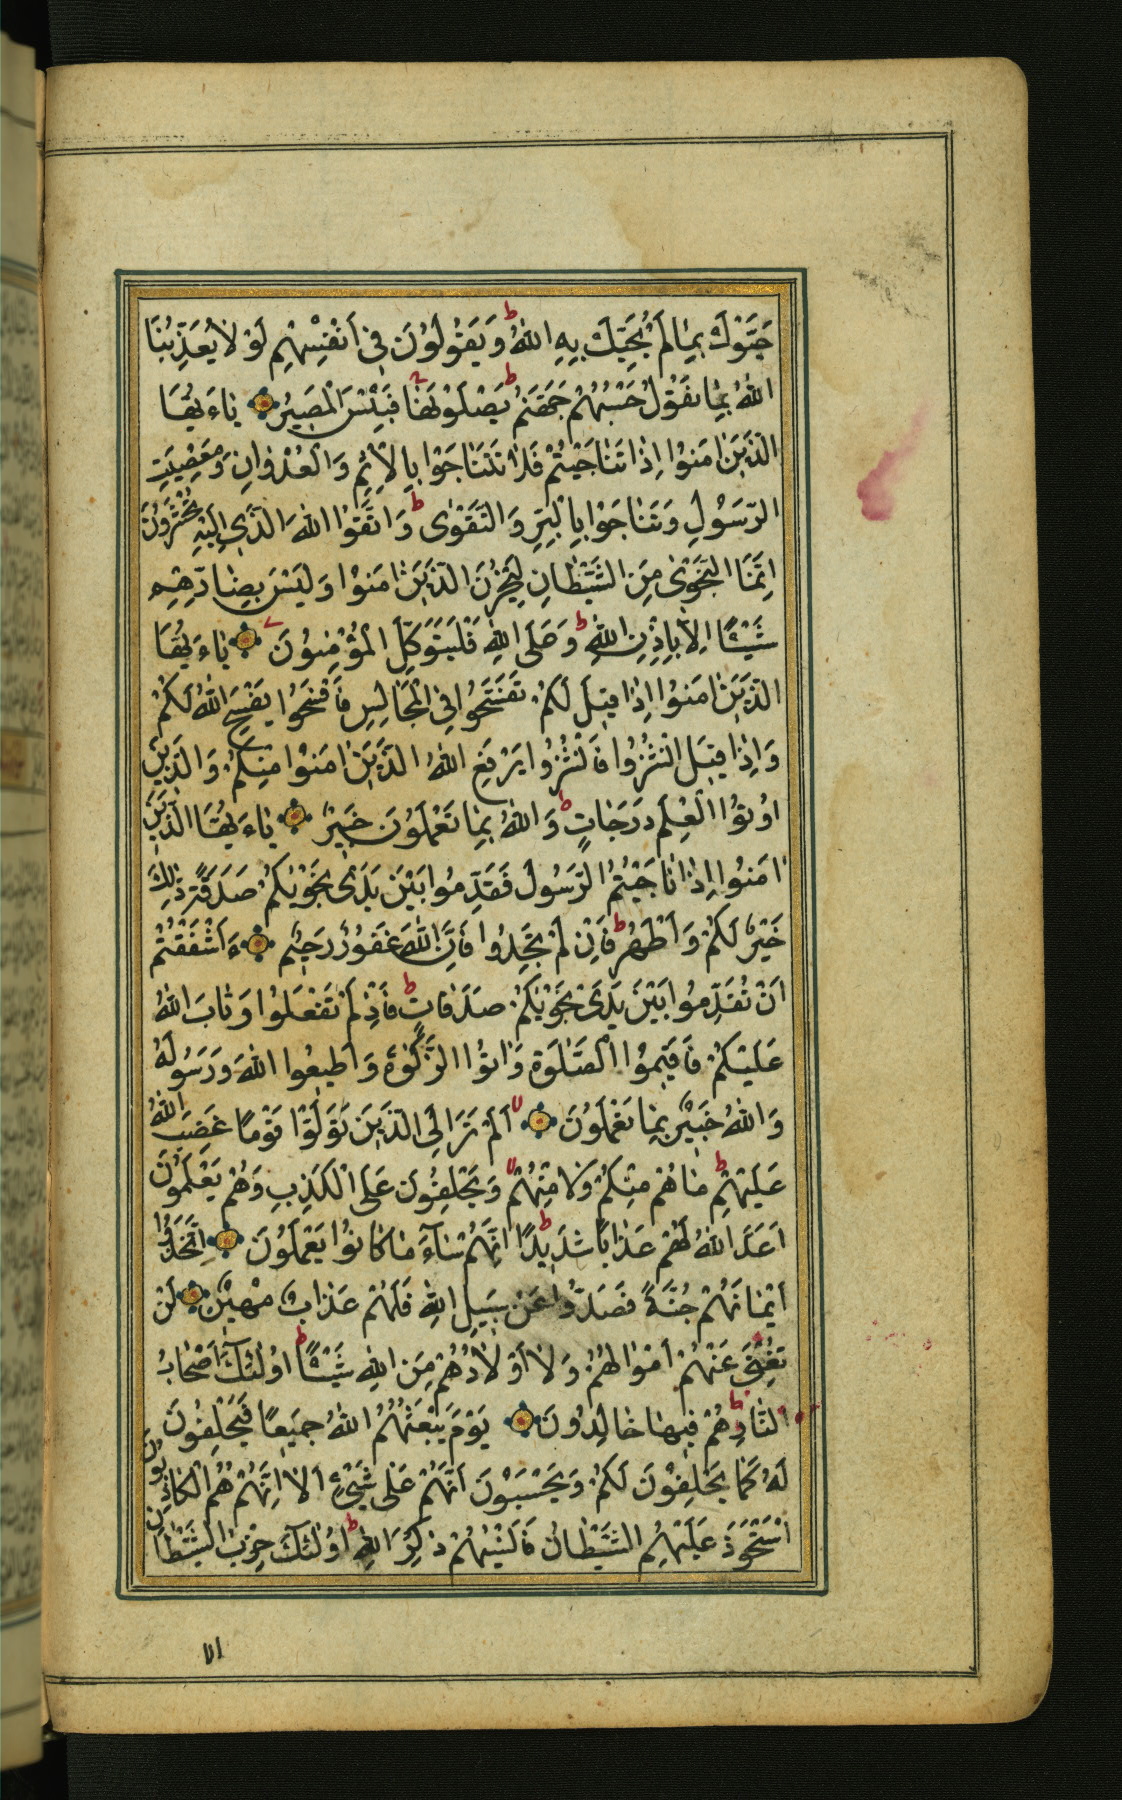 حَيَّوْكَ بِمٰا لَمْ يُحَيِّكَ بِهِ اللّٰهُ ط وَ يَقُولُونَ فِي اَنْفُسِهِمْ لَوْ لٰا يُعَذِّبُنَا
اللّٰهُ بِمٰا نَقُولُ حَسْبُهُمْ جَهَنَّمُ ط يَصْلَوْنَهٰا فَبِئْسَ الْمَصِيرُ يٰاءَيُّهَا
الَّذِينَ اٰمَنُوا اِذٰا تَنٰاجَيْتُمْ فَلٰا تَتَنٰاجَوْا بِالْاِثْمِ وَ الْعُدْوٰانِ وَ مَعْصِيَتِ
الرَّسُولِ وَ تَنٰاجَوْا بِالْبِرِّ وَ التَّقْوٰى ط وَ اتَّقُوا اللّٰهَ الَّذِي اِلَيْهِ تُحْشَرُونَ
اِنَّمَا النَّجْوٰى مِنَ الشَّيْطٰانِ لِيَحْزُنَ الَّذِينَ اٰمَنُوا وَ لَيْسَ بِضٰارِّهِمْ
شَيْئًا اِلّٰا بِاِذْنِ اللّٰهِ ط وَ عَلَى اللّٰهِ فَلْيَتَوَكَّلِ الْمُؤْمِنُونَ يٰاءَيُّهَا
الَّذِينَ اٰمَنُوا اِذٰا قِيلَ لَكُمْ تَفَسَّحُوا فِي الْمَجٰالِسِ فَافْسَحُوا يَفْسَحِ اللّٰهُ لَكُمْ
وَ اِذٰا قِيلَ انْشُزُوا فَانْشُزُوا يَرْفَعِ اللّٰهُ الَّذِينَ اٰمَنُوا مِنْكُمْ وَ الَّذِينَ
اُوتُوا الْعِلْمَ دَرَجٰاتٍ ط وَ اللّٰهُ بِمٰا تَعْمَلُونَ خَبِيرٌ يٰاءَيُّهَا الَّذِينَ
اٰمَنُوا اِذٰا نٰاجَيْتُمُ الرَّسُولَ فَقَدِّمُوا بَيْنَ يَدَيْ نَجْوٰيكُمْ صَدَقَةً ذٰلِكَ
خَيْرٌ لَكُمْ وَ اَطْهَرُ ط فَاِنْ لَمْ تَجِدُوا فَاِنَّ اللّٰهَ غَفُورٌ رَحِيمٌ ءَاَشْفَقْتُمْ
اَنْ تُقَدِّمُوا بَيْنَ يَدَيْ نَجْوٰيكُمْ صَدَقٰاتٍ ط فَاِذْ لَمْ تَفْعَلُوا وَ تٰابَ اللّٰهُ
عَلَيْكُمْ فَاَقِيمُوا الصَّلٰوةَ وَ اٰتُوا الزَّكٰوةَ وَ اَطِيعُوا اللّٰهَ وَ رَسُولَهُ
وَ اللّٰهُ خَبِيرٌ بِمٰا تَعْمَلُونَ لا اَلَمْ تَرَ اِلَى الَّذِينَ تَوَلَّوْا قَوْمًا غَضِبَ اللّٰهُ
عَلَيْهِمْ ط مٰا هُمْ مِنْكُمْ وَ لٰا مِنْهُمْ لا وَ يَحْلِفُونَ عَلَى الْكَذِبِ وَ هُمْ يَعْلَمُونَ
اَعَدَّ اللّٰهُ لَهُمْ عَذٰابًا شَدِيدًا ط اِنَّهُمْ سٰاءَ مٰا كٰانُوا يَعْمَلُونَ اِتَّخَذُوا
اَيْمٰانَهُمْ جُنَّةً فَصَدُّوا عَنْ سَبِيلِ اللّٰهِ فَلَهُمْ عَذٰابٌ مُهِينٌ لَنْ
تُغْنِيَ عَنْهُمْ اَمْوٰالُهُمْ وَ لٰا اَوْلٰادُهُمْ مِنَ اللّٰهِ شَيْئًا ط اُولٰئِكَ اَصْحٰابُ
النّٰارِ ط هُمْ فِيهٰا خٰالِدُونَ يَوْمَ يَبْعَثُهُمُ اللّٰهُ جَمِيعًا فَيَحْلِفُونَ
لَهُ كَمٰا يَحْلِفُونَ لَكُمْ وَ يَحْسَبُونَ اَنَّهُمْ عَلٰى شَيْءٍ اَلٰا اِنَّهُمْ هُمُ الْكٰاذِبُونَ
اسْتَحْوَذَ عَلَيْهِمُ الشَّيْطٰانُ فَاَنْسٰيهُمْ ذِكْرَ اللّٰهِ ط اُولٰئِكَ حِزْبُ الشَّيْطٰانِ